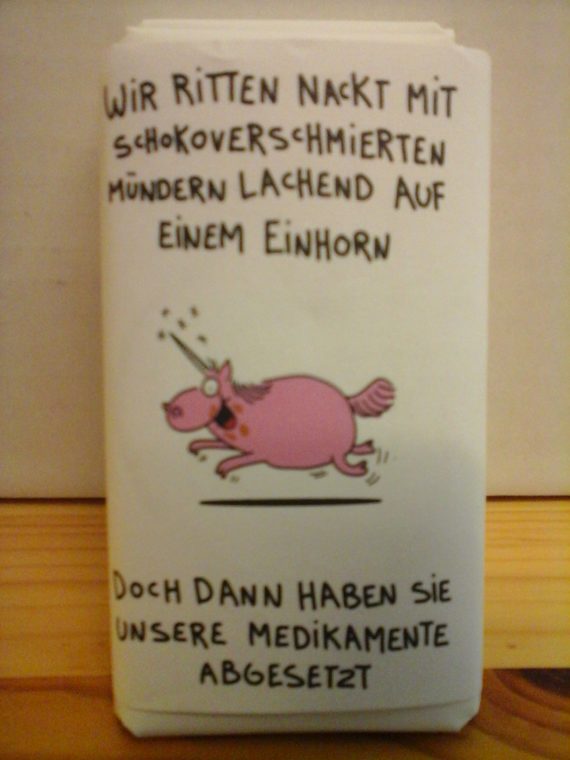 WIR RITTEN NACKT MIT
SCHOKOVERSCHMIERTEN
MÜNDERN LACHEND AUF
EINEM EINHORN
DOCH DANN HABEN SIE
UNSERE MEDIKAMENTE
ABGESETZT